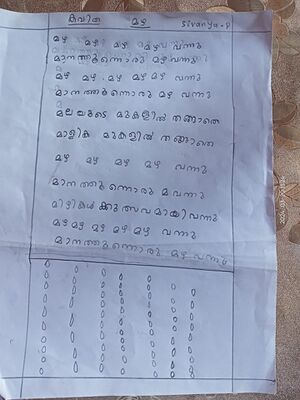 കവിത മഴ Sivanya.P
മഴ മഴ മഴ മഴ വന്നു
മാനത്തൂന്നൊരു മഴ വന്നു
മഴ മഴ മഴ മഴ മഴ വന്നു
മാനത്തൂന്നൊരു മഴ വന്നു
മലയുടെ മുകളിൽ തങ്ങാതെ
മാളിക മുകളിൽ തങ്ങാതെ
മഴ മഴ മഴ മഴ വന്നു
മാനത്തൂന്നൊരു മ വന്നു
മിഴികൾക്കുത്സവമായി വന്നു
മഴ മഴ മഴ മഴ മഴ വന്നു
മാനത്തൂന്നൊരു മഴ വന്നു